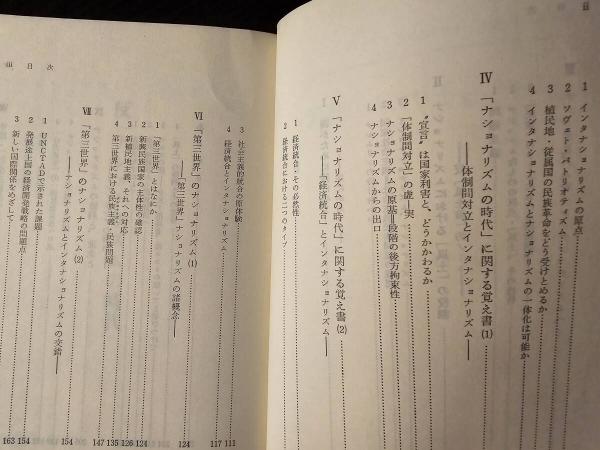 ii
1 インタナショナリズムの原点
2 ソヴェト・パトリオティズム
3 植民地・従属国の民族革命をどう受けとめるか
4 インタナショナリズムとナショナリズムの一体化は可能か
Ⅳ 「ナショナリズムの時代」に関する覚え書(1)
――体制間対立とインタナショナリズム――
1 〝宣言〟は国家利害と、どうかかわるか
2 「体制間対立」の虚―実
3 ナショナリズムの原基―段階の後方拘束性
4 ナショナリズムからの出口
Ⅴ 「ナショナリズムの時代」に関する覚え書(2)
――「経済統合」とインタナショナリズム――
1 経済統合・その必然性
2 経済統合における二つのタイプ
iii 目次
3 社会主義的統合の原体験 111
4 経済統合とインタナショナリズム 117
Ⅵ 「第三世界」のナショナリズム(1) 124
――「第三世界」ナショナリズムの諸概念――
1 「第三世界」とはなにか 124
2 新興民族国家の主体性の確認 126
3 新植民地主義、それへの対応 135
4 第三世界における民主主義・民族問題 147
Ⅶ 「第三世界」のナショナリズム(2) 154
――ナショナリズムとインタナショナリズムの交錯――
1 UNCTADで示された課題 154
2 発展途上国の経済開発戦略の問題点 157
3 新しい国際関係をめざして 163